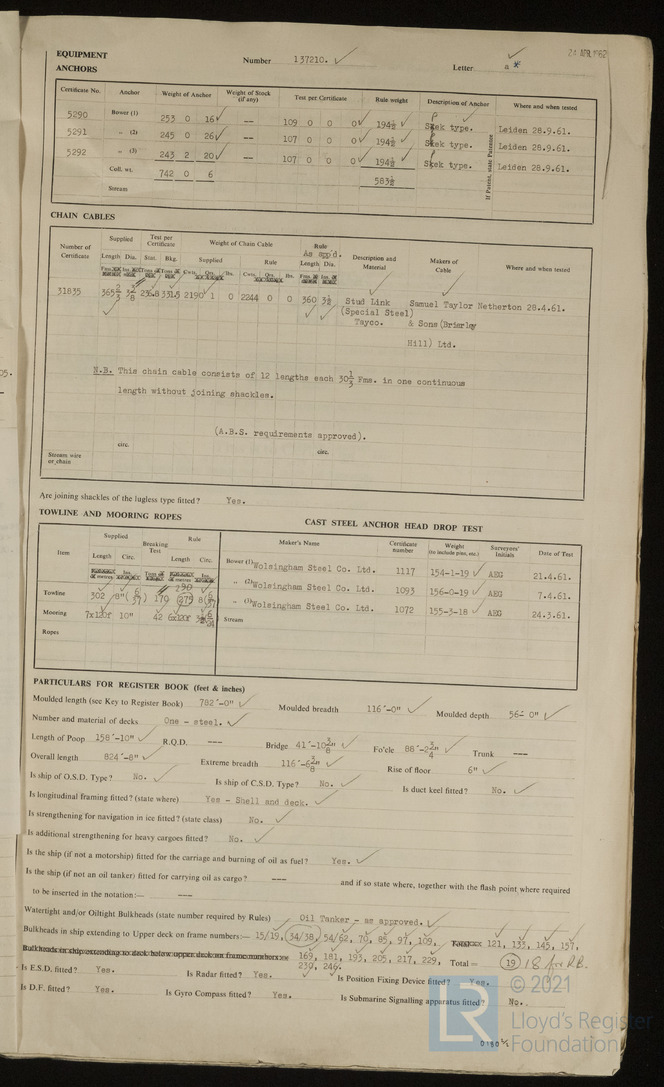 24 APR 1962
EQUIPMENT Number 137210. Letter a *
ANCHORS
Certificate No. Anchor Weight of Anchor Weight of Stock (if any) Test per Certificate Rule weight Description of Anchor Where and when tested
If Patent, state Patentee
5290 Bower (1) 253 0 16 — 109 0 0 0 194½ Stek type. Leiden 28.9.61.
5291 „ (2) 245 0 26 — 107 0 0 0 194½ Stek type. Leiden 28.9.61.
5292 „ (3) 243 2 20 — 107 0 0 0 194½ Stek type. Leiden 28.9.61.
Coll. wt. 742 0 6 583½
Stream
CHAIN CABLES
Number of Certificate Supplied Test per Certificate Weight of Chain Cable Rule As app'd. Description and Material Makers of Cable Where and when tested
Length Dia. Stat. Bkg. Supplied Rule Length Dia.
Fms. Ins. Tons Tons Cwts. Qrs. lbs. Cwts. Qrs. lbs. Fms. Ins.
31835 365⅔ 3⅜ 236.8 331.5 2190 1 0 2244 0 0 360 3½ Stud Link Samuel Taylor Netherton 28.4.61.
(Special Steel)
Tayco. & Sons (Brierley
Hill) Ltd.
N.B. This chain cable consists of 12 lengths each 30⅓ Fms. in one continuous
length without joining shackles.
(A.B.S. requirements approved).
circ. circ.
Stream wire or chain
Are joining shackles of the lugless type fitted? Yes.
TOWLINE AND MOORING ROPES CAST STEEL ANCHOR HEAD DROP TEST
Item Supplied Breaking Test Rule Maker's Name Certificate number Weight (to include pins, etc.) Surveyors' Initials Date of Test
Length Circ. Length Circ.
Bower (1) Wolsingham Steel Co. Ltd. 1117 154-1-19 AEG 21.4.61.
„ (2) Wolsingham Steel Co. Ltd. 1093 156-0-19 AEG 7.4.61.
„ (3) Wolsingham Steel Co. Ltd. 1072 155-3-18 AEG 24.3.61.
Stream
Towline 302 8"(6/37) 179 290 275 8(6/37)
Mooring 7x120f 10" 42 6x120f
Ropes
PARTICULARS FOR REGISTER BOOK (feet & inches)
Moulded length (see Key to Register Book) 782'-0" Moulded breadth 116'-0" Moulded depth 56'- 0"
Number and material of decks One - steel.
Length of Poop 158'-10" R.Q.D. --- Bridge 41'-10⅜" Fo'cle 88'-2¾" Trunk ---
Overall length 824'-8" Extreme breadth 116'-6⅝" Rise of floor 6"
Is ship of O.S.D. Type? No. Is ship of C.S.D. Type? No. Is duct keel fitted? No.
Is longitudinal framing fitted? (state where) Yes - Shell and deck.
Is strengthening for navigation in ice fitted? (state class) No.
Is additional strengthening for heavy cargoes fitted? No.
Is the ship (if not a motorship) fitted for the carriage and burning of oil as fuel? Yes.
Is the ship (if not an oil tanker) fitted for carrying oil as cargo? --- and if so state where, together with the flash point where required
to be inserted in the notation:— ---
Watertight and/or Oiltight Bulkheads (state number required by Rules) Oil Tanker - as approved.
Bulkheads in ship extending to Upper deck on frame numbers:— 15/19, 34/38, 54/62, 70, 85, 97, 109, Total 121, 133, 145, 157,
Bulkheads in ship extending to deck below upper deck on frame numbers 169, 181, 193, 205, 217, 229, Total = 19 18 for R.B.
230, 246.
Is E.S.D. fitted? Yes. Is Radar fitted? Yes. Is Position Fixing Device fitted? Yes.
Is D.F. fitted? Yes. Is Gyro Compass fitted? Yes. Is Submarine Signalling apparatus fitted? No.
© 2021
LR Lloyd's Register
Foundation